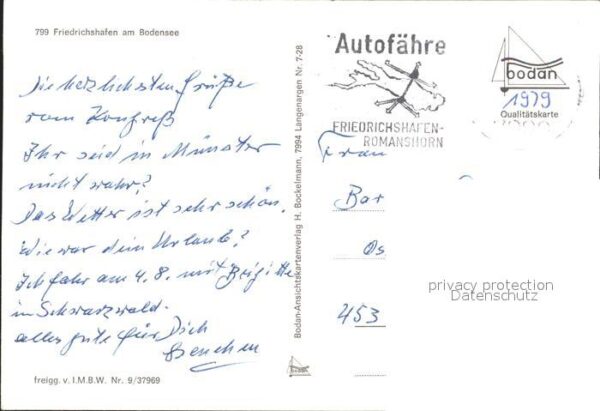 799 Friedrichshafen am Bodensee
Die herzlichsten Grüße
vom Kongreß
Ihr seid in Münster
nicht wahr?
Das Wetter ist sehr schön.
Wie war dein Urlaub?
Ich fahr am 4.8. mit Brigitte
im Schwarzwald.
alles gute für Dich
freigg. v. I.M.B.W. Nr. 9/37969
Bodan-Ansichtskartenverlag H. Bockelmann, 7994 Langenargen Nr. 7-28
Autofähre
FRIEDRICHSHAFEN-
ROMANSHORN
bodan
1979
Qualitätskarte
Frau
Bar
Os
453
privacy protection
Datenschutz